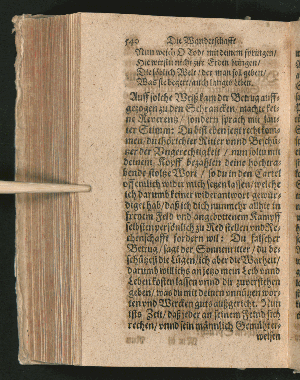 540 Die Wanderschafft
Nun weich O Todt mit deinem springen/
Hie
Die schnöd Welt/ der man soll geben/
Was sie begert/ auch langes leben.
Auff solche Weiß kam der Betrug auff-
gezogen zu den Schrancken/ machte kei-
ne Reverentz/ sondern sprach mit lau-
ter Stimm: Du bist eben jetzt recht kom-
men/ du thörichter Ritter unnd Beschü-
tzer der Ungerechtigkeit/ nun solt mit
deinem Kopff bezahlen deine hochtra-
bende stoltze Wort/ so du in den Cartel
offentlich wider mich sehen lassen/ welche
ich darumb keiner widerantwort gewür-
diget hab/ daß ich dich nunmehr allhie in
freyem Feld und angebottenem Kampff
selbsten persönlich zu Red stellen und Re-
chenschafft fordern wil: Du falscher
Betrug/ sagt der Sonnenritter/ du be-
schützest die Lügen/ ich aber die Warheit/
darumb will ich an jetzo mein Leib unnd
Leben kosten lassen unnd dir zuverstehen
geben/ was du mit deinen unnützen wor-
ten und Wercken guts außgericht. Nun
ists Zeit/ daß jeder an seinem Feind sich
rechen/ unnd sein männlich Gemüth er-
weisen